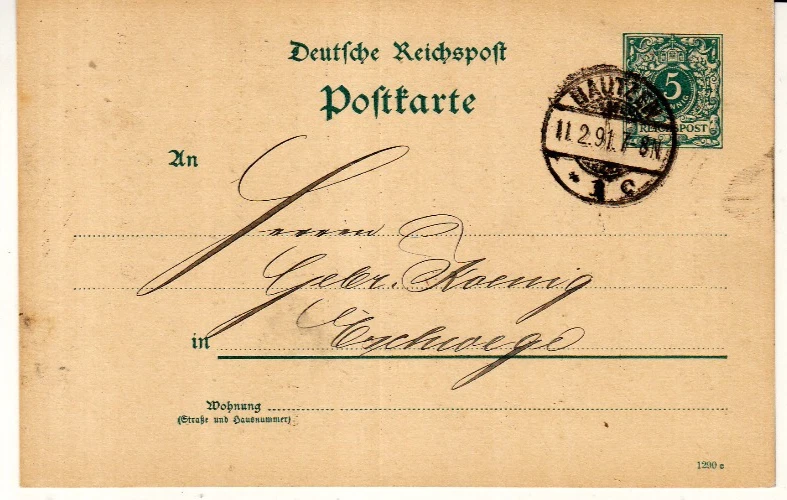 Deutsche Reichspost
Postkarte
5
REICHSPOST
BAUTZEN
11.2.91.7-8N.
* c
An
Herren
Gebr. Koenig
in Eschwege
Wohnung
(Straße und Hausnummer)
1290 c